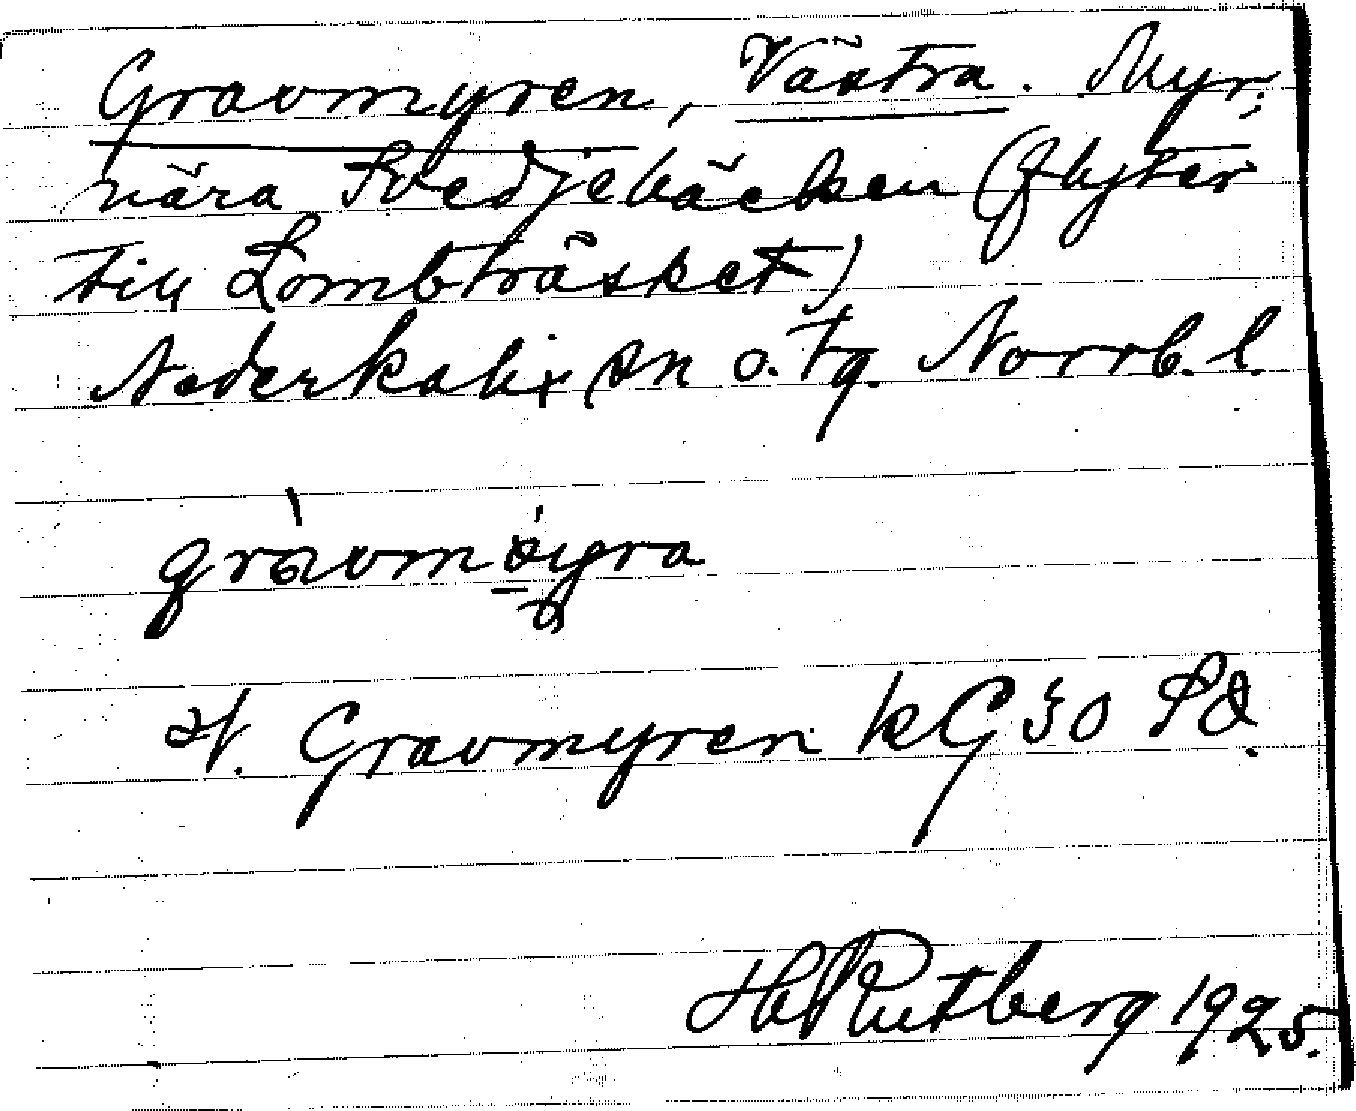 Gravmyren, Västra. Myr;
nära Svedjebäcken (flyter
till Lombträsket)
Nederkalix sn o. tg. Norrb. l.
V. Gravmyren kG 30 SO.
H Rutberg 1925.